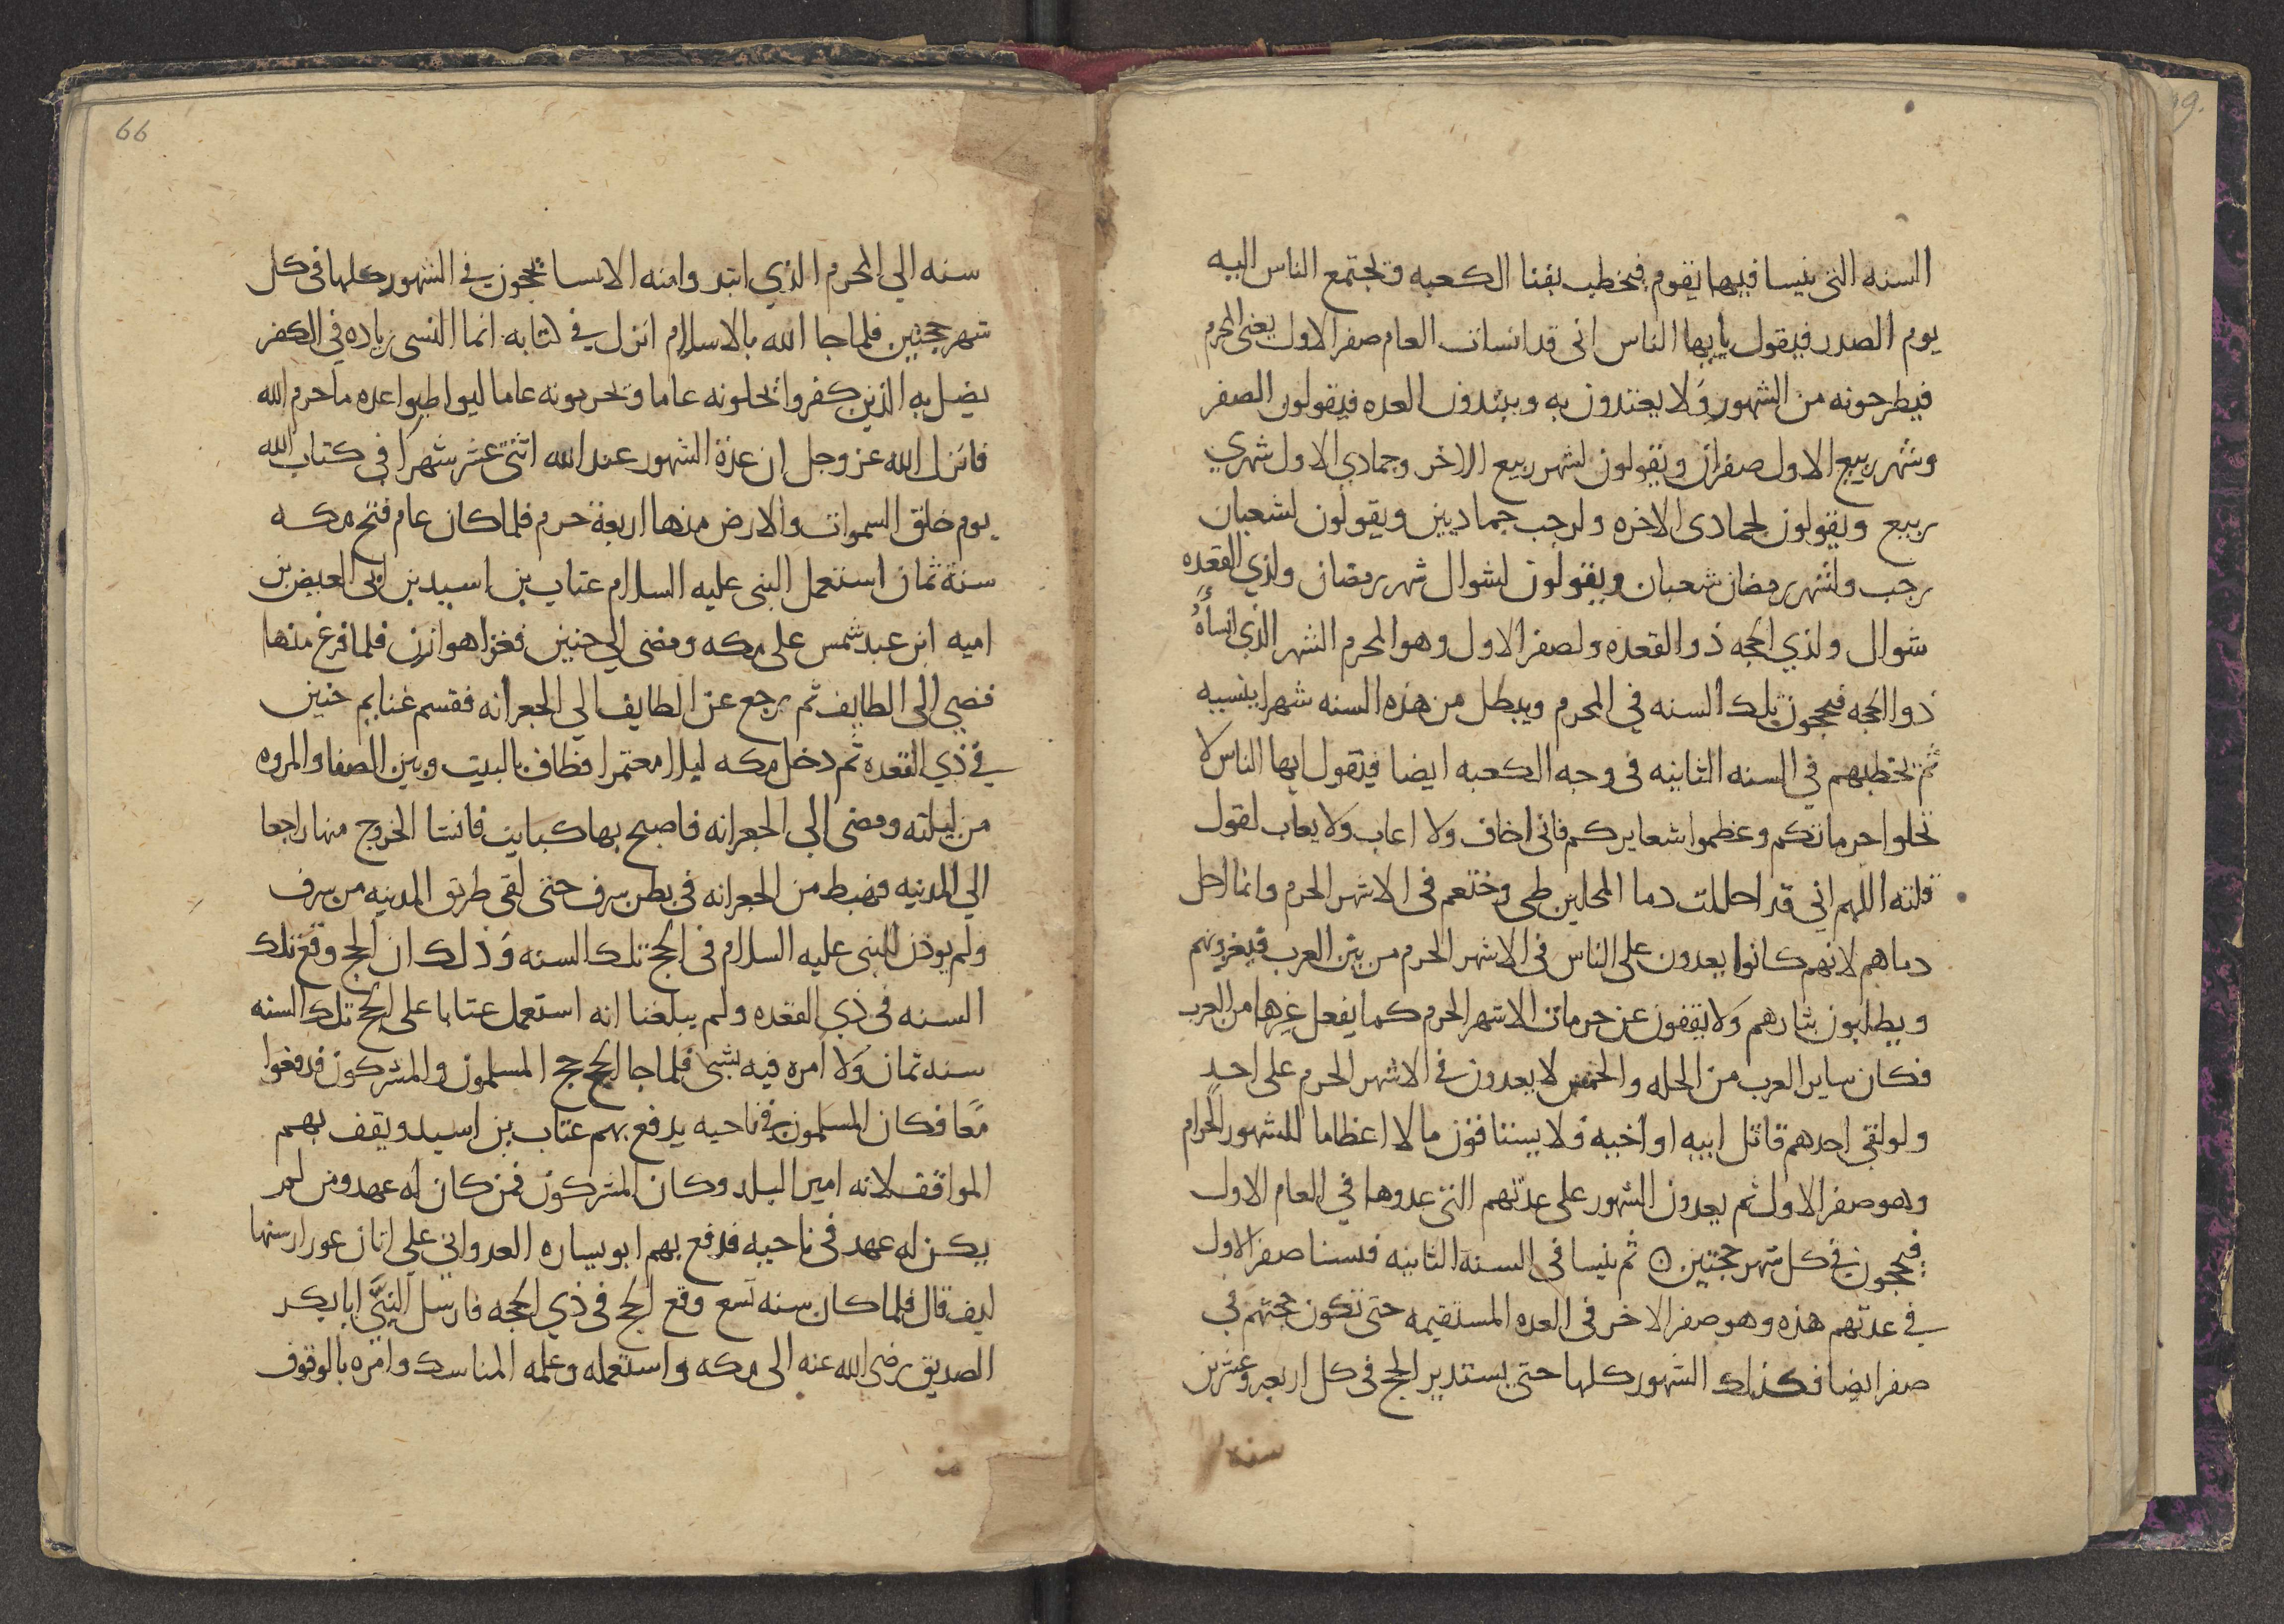 السنه التى ينسا فيها يقوم فيخطب بفنا الكعبه وتجتمع الناس اليه
يوم الصدر فيقول يايها الناس انى قد انسات العام صفر الاول يعنى المحرم
فيطرحونه من الشهور ولا يعتدون به ويبتدون العده فيقولون الصفر
وشهر ربيع الاول صفران ويقولون لشهر ربيع الاخر وجمادي الاول شهري
ربيع ويقولون لجمادى الاخره ولرجب جماديين ويقولون لشعبان
رجب ولشهر رمضان شعبان ويقولون لشوال شهر رمضان ولذي القعده
شوال ولذي الحجه ذو القعده ولصفر الاول وهو المحرم الشهر الذي انسأهُ
ذو الحجه فيحجون تلك السنه في المحرم ويبطل من هذه السنه شهرا ينسيه
ثم يخطبهم في السنه الثانيه في وجه الكعبه ايضا فيقول ايها الناس لا
تحلوا حرماتكم وعظموا شعايركم فانى اخاف ولا اعاب ولا يعاب لقول
قلته اللهم اني قد احللت دما المحلين طي وخثعم فى الاشهر الحرم وانما احل
دماهم لانهم كانوا يعدون على الناس فى الاشهر الحرم من بين العرب فيغزونهم
ويطلبون بثارهم ولا يقفون عن حرمات الاشهر الحرم كما يفعل غيرها من العرب
فكان ساير العرب من الحله والحمس لا يعدون في الاشهر الحرم على احدٍ
ولو لقى احدهم قاتل ابيه او اخيه ولا يستاقون مالا اعظاما للشهور الحرام
وهو صفر الاول ثم يعدون الشهور على عدتهم التى عدوها في العام الاول
فيحجون في كل شهر حجتين ۞ ثم ينسا فى السنة الثانيه فينسا صفر الاول
في عدتهم هذه وهو صفر الاخر فى العده المستقيمه حتى تكون حجتهم في
صفر ايضا فكذلك الشهور كلها حتى يستدير الحج فى كل اربعه وعشرين
سنه
66
سنه الي المحرم الذي ابتدوا منه الانسا يحجون في الشهور كلها فى كل
شهر حجتين فلما جا الله بالاسلام انزل في كتابه انما النسى زياده في الكفر
يضل به الذين كفروا يحلونه عاما ويحرمونه عاما ليواطيوا عده ما حرم الله
فانزل الله عز وجل ان عدة الشهور عند الله اثنى عشر شهرا فى كتاب الله
يوم خلق السموات والارض منها اربعة حرم فلما كان عام فتح مكه
سنة ثمان استعمل النبى عليه السلام عتاب بن اسيد بن ابى العيص بن
اميه ابن عبد شمس على مكه ومضى الى حنين فغزا هوازن فلما فرغ منها
مضى الى الطايف ثم رجع عن الطايف الي الجعرانه فقسم غنايم حنين
في ذي القعده ثم دخل مكه ليلا معتمرا فطاف بالبيت وبين الصفا والمروه
من ليلته ومضى الى الجعرانه فاصبح بها كبايت فانشا الخروج منها راجعا
الي المدينه فهبط من الجعرانه فى بطن سرف حتى لقى طريق المدينه من سرف
ولم يوذن للنبى عليه السلام فى الحج تلك السنه وذلك ان الحج وقع تلك
السنه فى ذي القعده ولم يبلغنا انه استعمل عتابا على الحج تلك السنه
سنه ثمان ولا امره فيه بشى فلما جا الحج حج المسلمون والمشركون فدفعوا
معًا فكان المسلمون في ناحيه يدفع بهم عتاب بن اسيد ويقف بهم
المواقف لانه امير البلد وكان المشركون فمن كان له عهد ومن لم
يكن له عهد فى ناحيه فدفع بهم ابو سياره العدواني على اتان عور ارسنها
ليف قال فلما كان سنه تسع وقع الحج في ذي الحجه فارسل النبى ابا بكر
الصديق رضى الله عنه الى مكه واستعمله وعلمه المناسك وامره بالوقوف